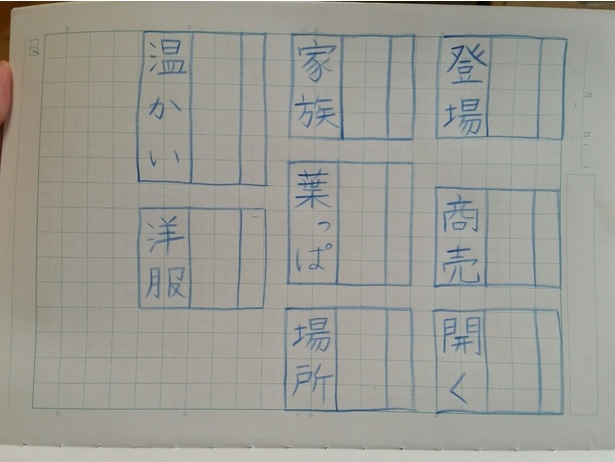 登場
商売
開く
家族
葉っぱ
場所
温かい
洋服